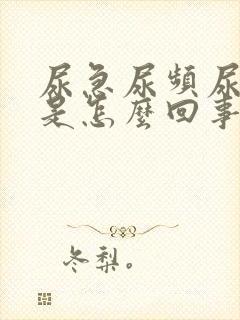 尿急尿頻尿
是怎麼回事
冬梨。